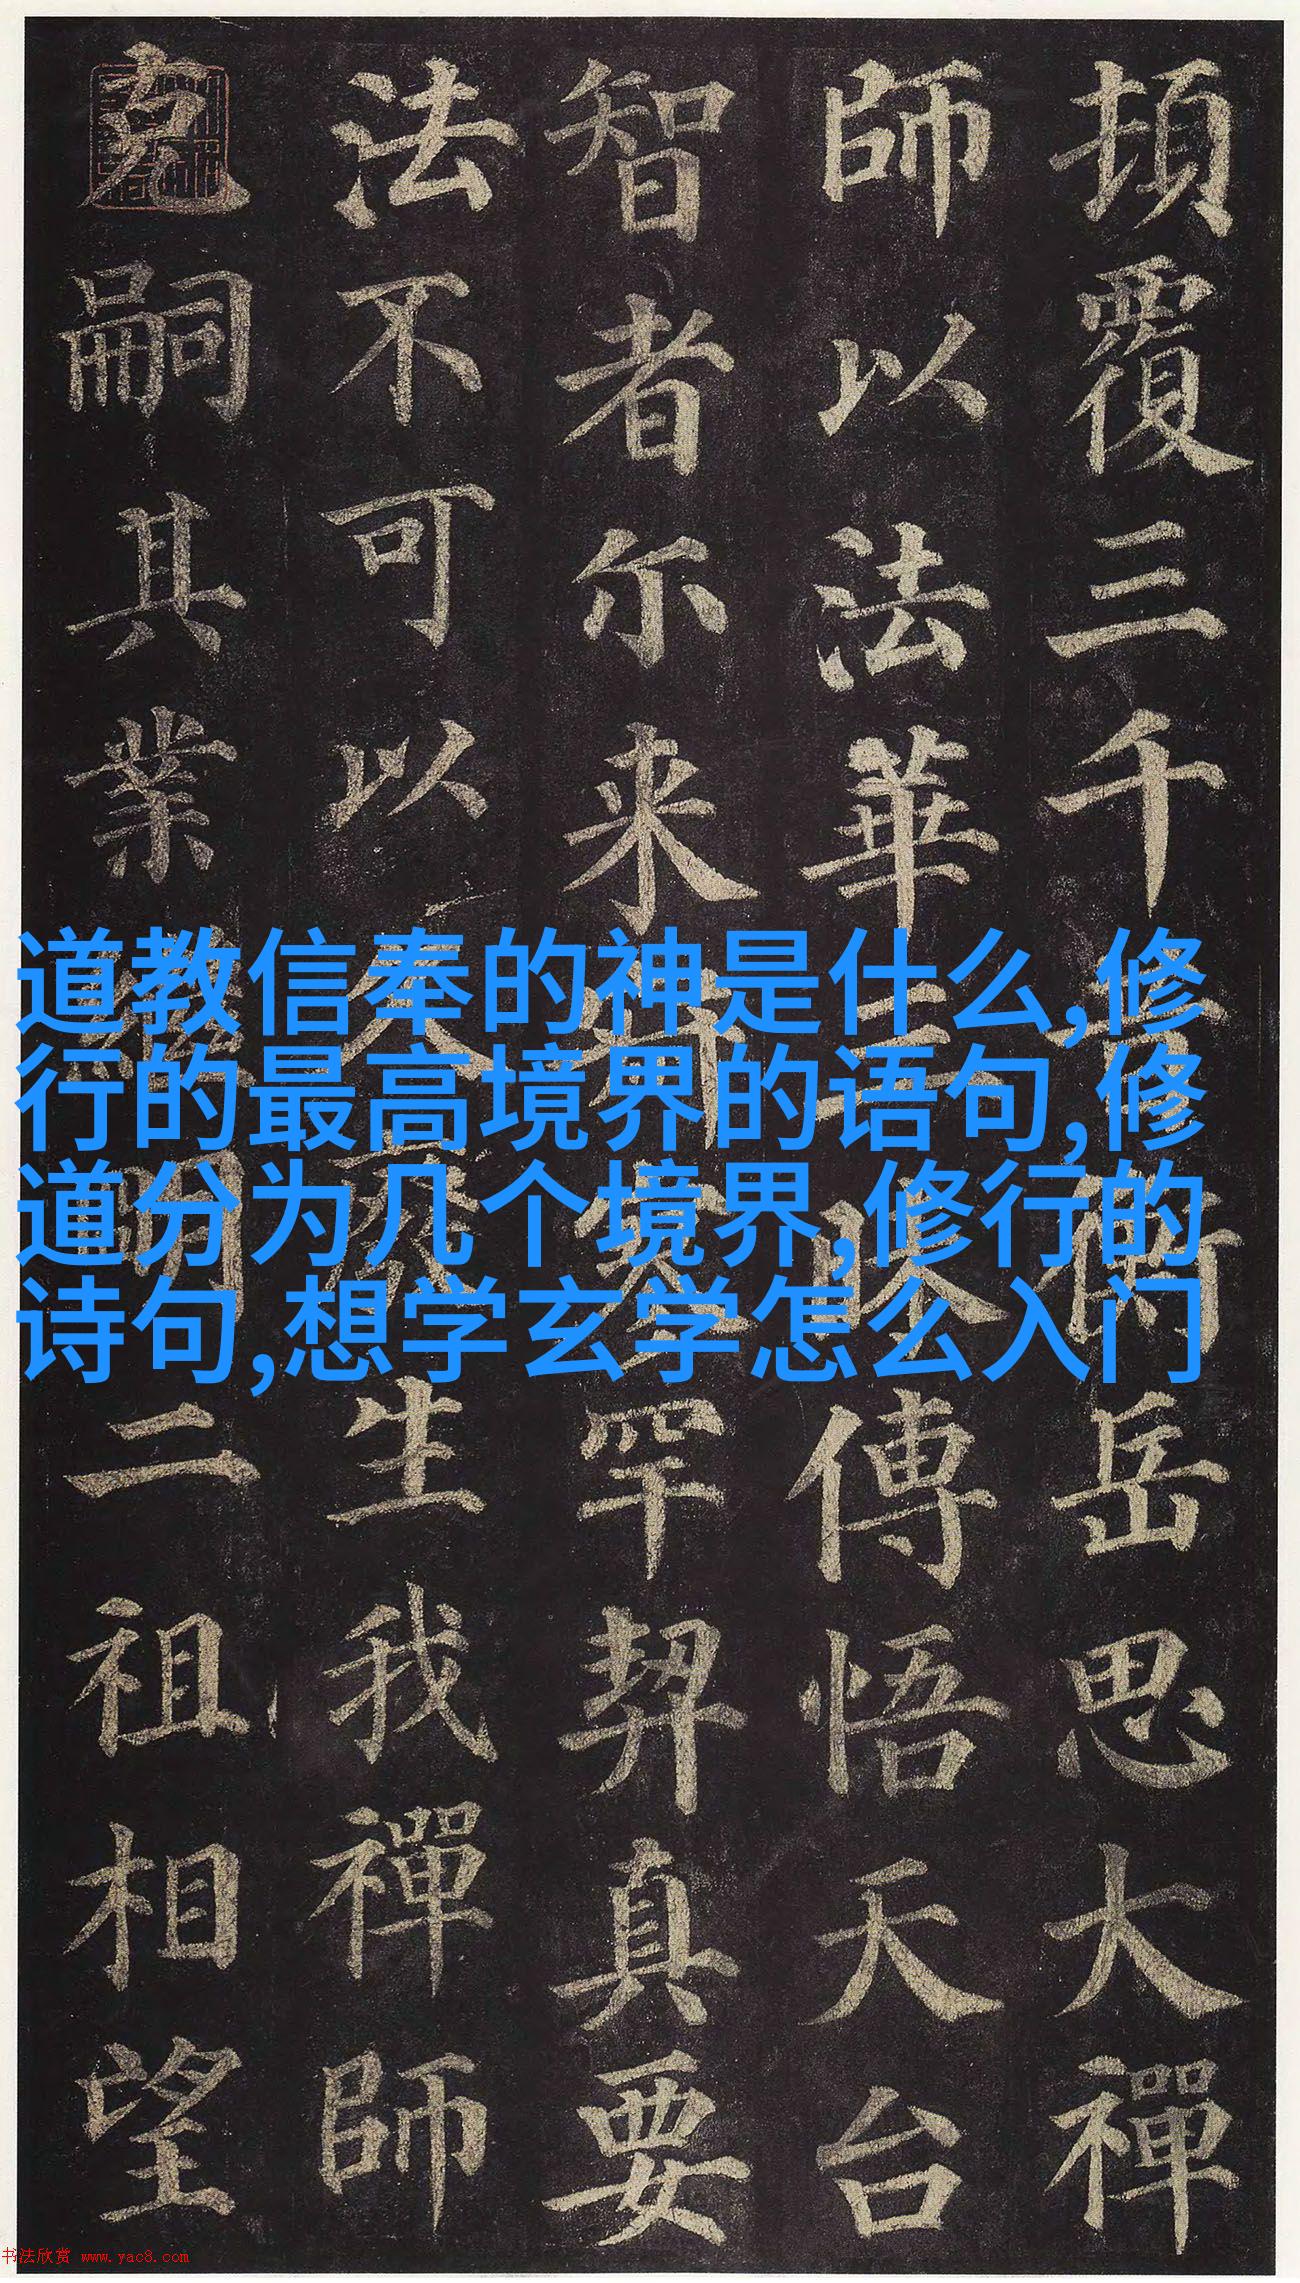 頂覆三千昔衡岳思大禪
師以法華三昧傳悟天台
智者尔来寂寥罕契真要
法不可以久廢生我禪師
克嗣其業繼明二祖相望
道教信奉的神是什么,修
行的最高境界的语句,修
道分为几个境界,修行的
诗句,想学玄学怎么入门
书法欣赏 www.yac8.com